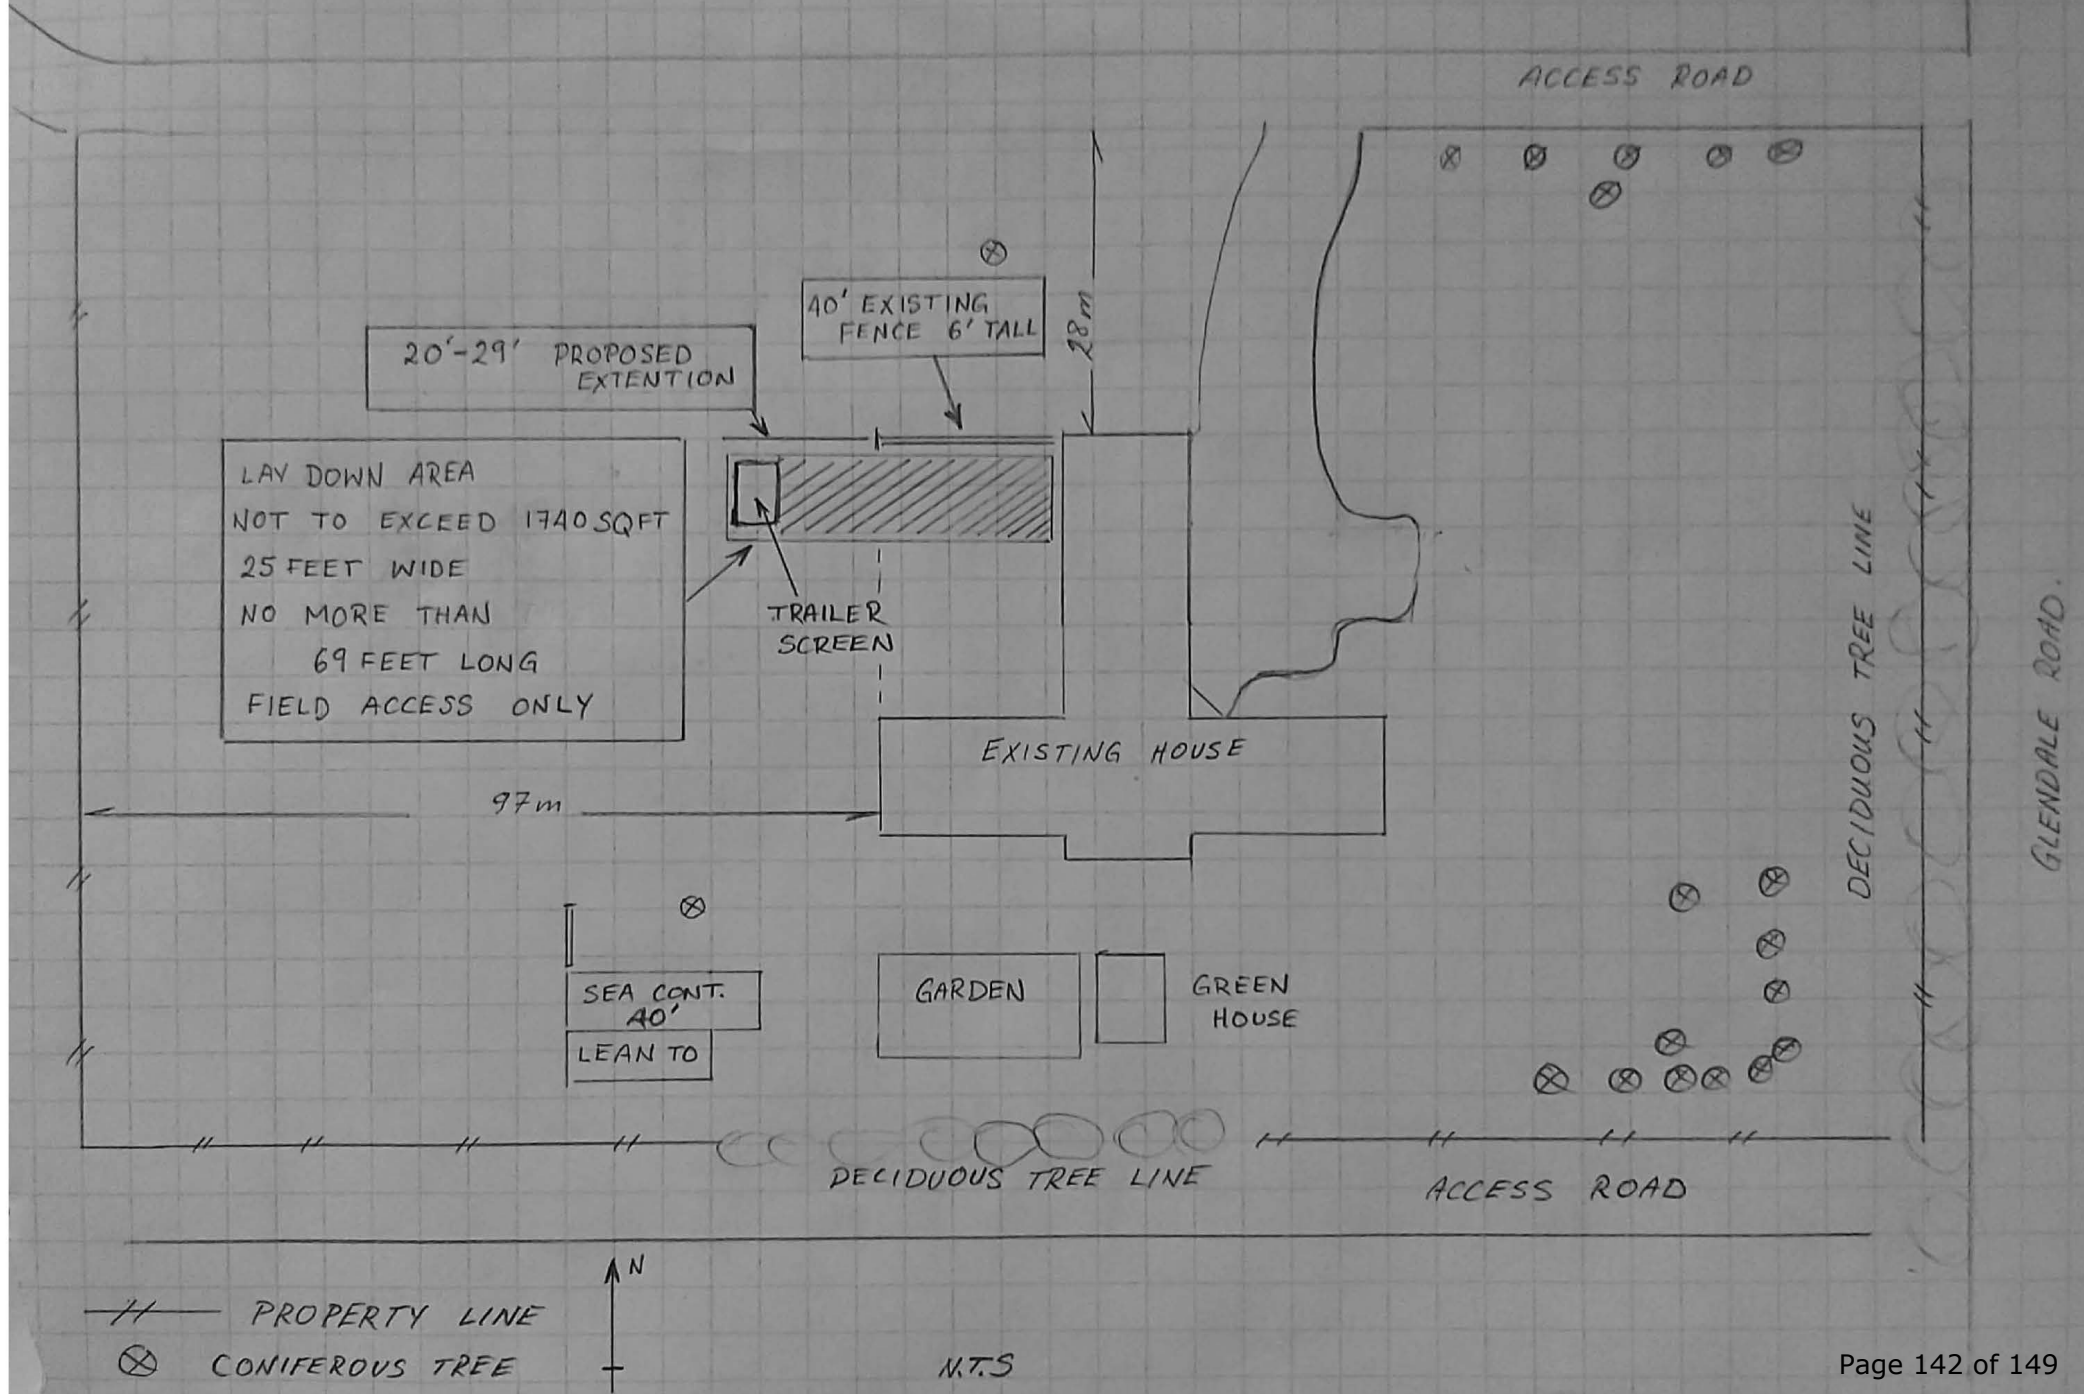 ACCESS ROAD
40' EXISTING
FENCE 6' TALL
28m
20'-29' PROPOSED
EXTENTION
LAY DOWN AREA
NOT TO EXCEED 1740 SQFT
25 FEET WIDE
NO MORE THAN
69 FEET LONG
FIELD ACCESS ONLY
TRAILER
SCREEN
DECIDUOUS TREE LINE
GLENDALE ROAD.
EXISTING HOUSE
97m
SEA CONT.
40'
LEAN TO
GARDEN
GREEN
HOUSE
DECIDUOUS TREE LINE
ACCESS ROAD
N
PROPERTY LINE
CONIFEROUS TREE
N.T.S
Page 142 of 149